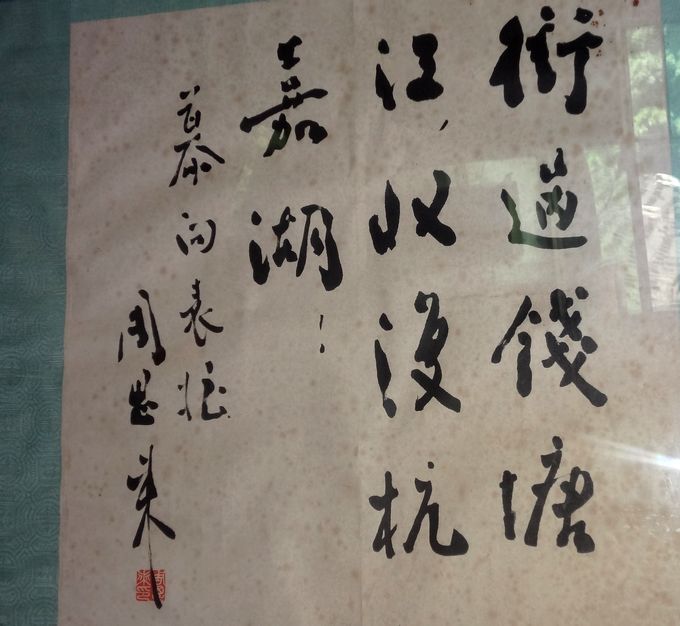 衝過錢塘
江，收復杭
嘉湖！
慕向表姪
周恩来